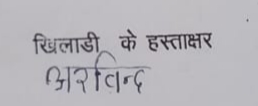 खिलाडी के हस्ताक्षर
अरविन्द